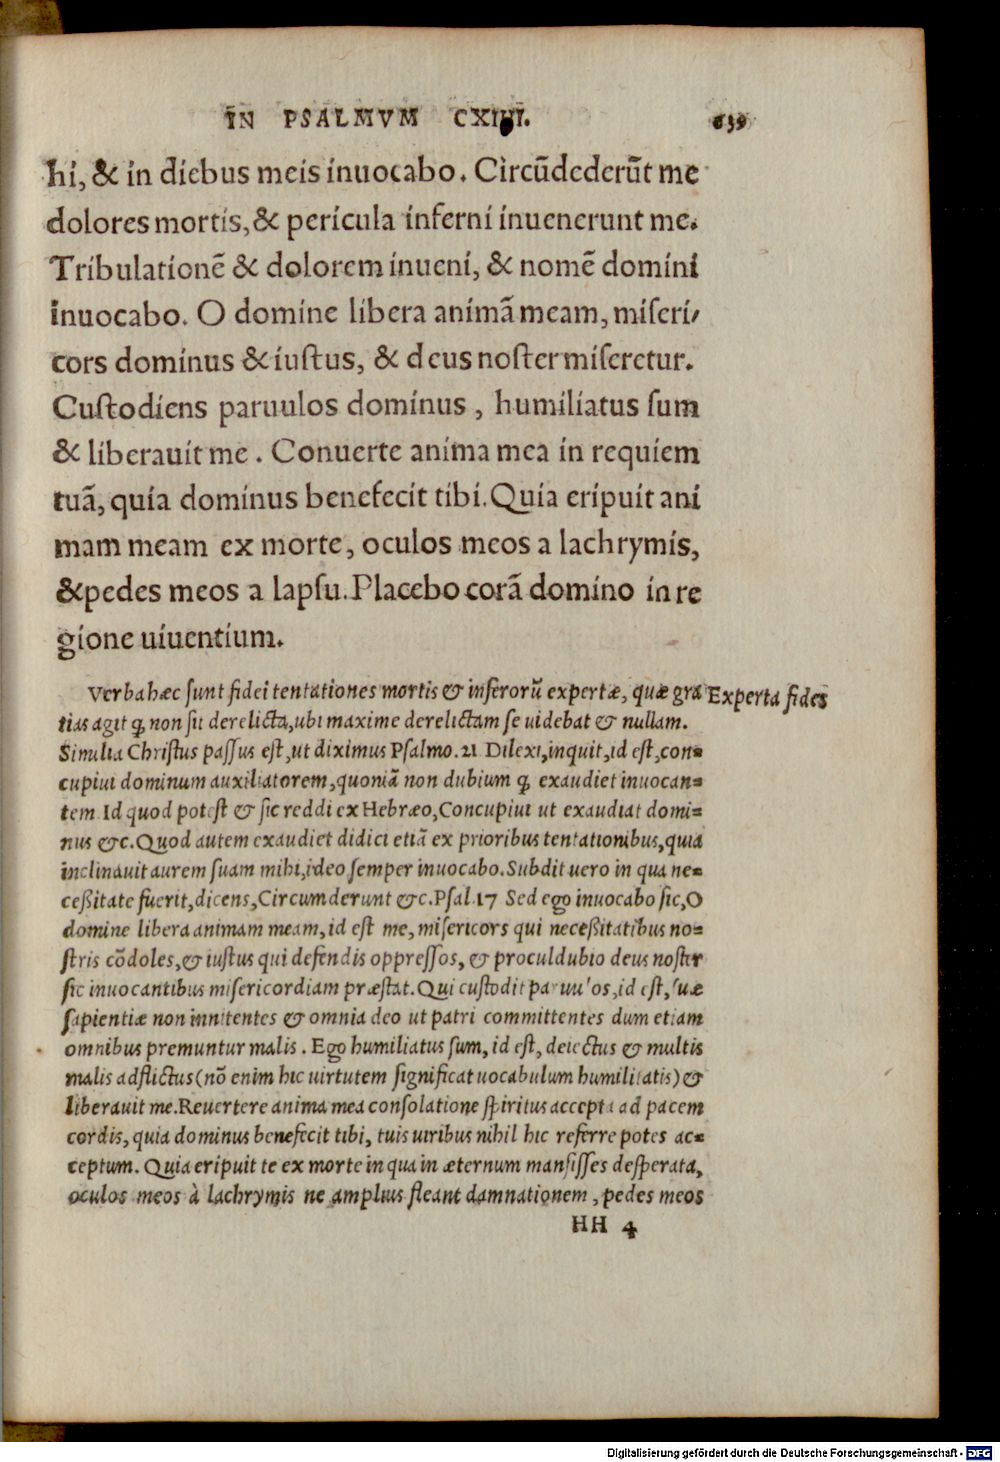 IN PSALMVM CXIIII. 639
hi, & in diebus meis inuocabo. Circũdederũt me
dolores mortis, & pericula inferni inuenerunt me.
Tribulationẽ & dolorem inueni, & nomẽ domini
inuocabo. O domine libera animã meam, miseri/
cors dominus & iustus, & deus noster miseretur.
Custodiens paruulos dominus, humiliatus sum
& liberauit me. Conuerte anima mea in requiem
tuã, quia dominus benefecit tibi. Quia eripuit ani
mam meam ex morte, oculos meos a lachrymis,
& pedes meos a lapsu. Placebo corã domino in re
gione uiuentium.
Verba hæc sunt fidei tentationes mortis & inferorũ expertæ, quæ gra
Experta fides
tias agit ꝙ non sit derelicta, ubi maxime derelictam se uidebat & nullam.
Similia Christus passus est, ut diximus Psalmo. 21 Dilexi, inquit, id est, con=
cupiui dominum auxiliatorem, quoniã non dubium ꝙ exaudiet inuocan=
tem Id quod potest & sic reddi ex Hebræo, Concupiui ut exaudiat domi=
nus &c. Quod autem exaudiet didici etiã ex prioribus tentationibus, quia
inclinauit aurem suam mihi, ideo semper inuocabo. Subdit uero in qua ne=
ceßitate fuerit, dicens, Circumderunt &c. Psal. 17 Sed ego inuocabo sic, O
domine libera animam meam, id est me, misericors qui neceßitatibus no=
stris cõdoles, & iustus qui defendis oppressos, & proculdubio deus noster
sic inuocantibus misericordiam præstat. Qui custodit paruulos, id est, suæ
sapientiæ non innitentes & omnia deo ut patri committentes dum etiam
omnibus premuntur malis. Ego humiliatus sum, id est, deiectus & multis
malis adflictus (nõ enim hic uirtutem significat uocabulum humilitatis) &
liberauit me. Reuertere anima mea consolatione spiritus accepta ad pacem
cordis, quia dominus benefecit tibi, tuis uiribus nihil hic referre potes ac=
ceptum. Quia eripuit te ex morte in qua in æternum mansisses desperata,
oculos meos à lachrymis ne amplius fleant damnationem, pedes meos
HH 4
Digitalisierung gefördert durch die Deutsche Forschungsgemeinschaft - DFG